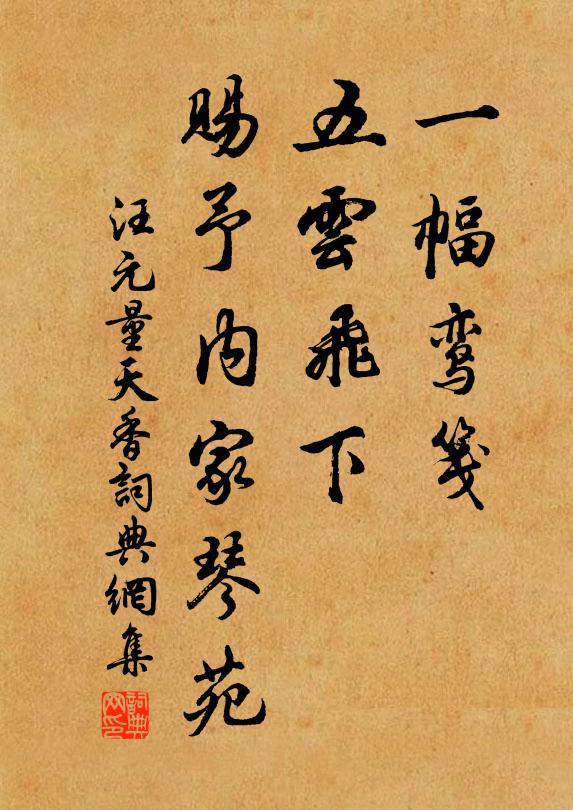 一幅鸾笺
五雲飛下
賜予内家琴苑
汪元量天香詞典網集
詞典網印